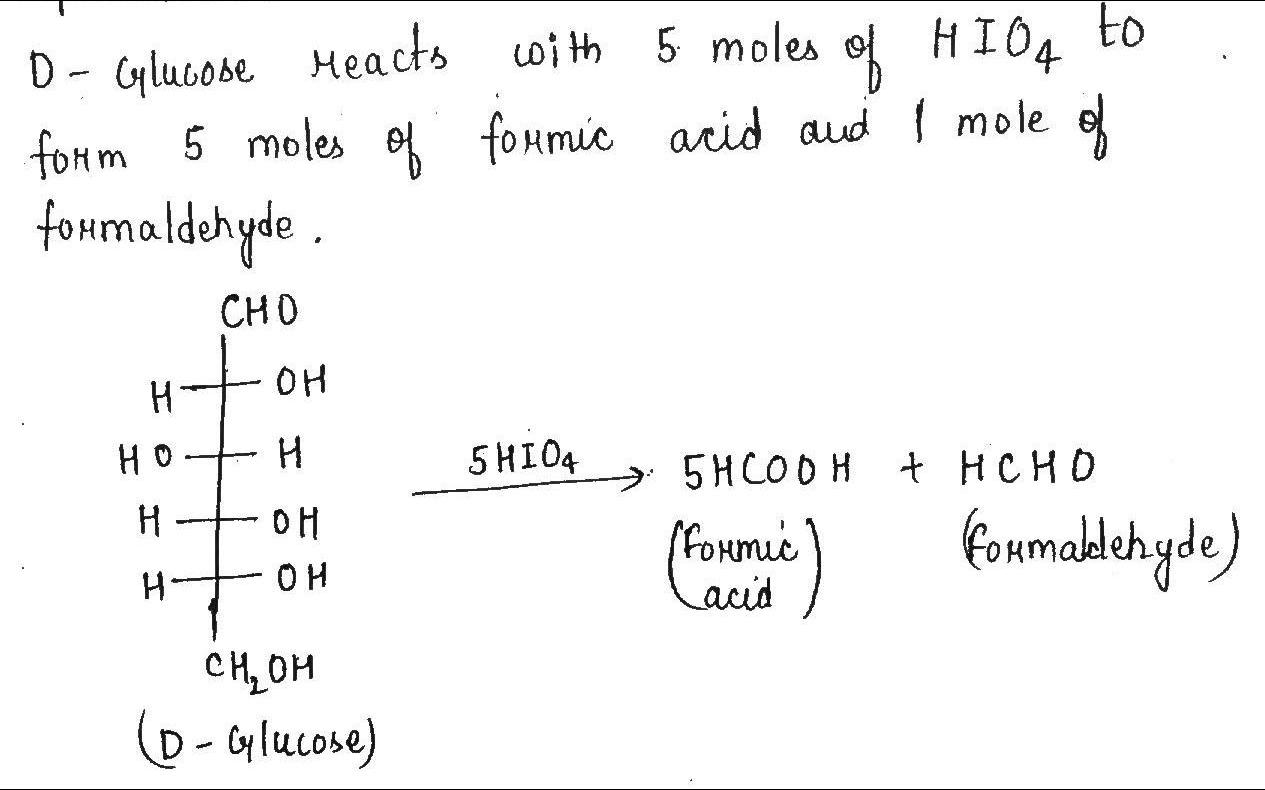 D - Glucose reacts with 5 moles of HIO4 to
form 5 moles of formic acid and 1 mole of
formaldehyde.
CHO
H OH
HO H
H OH
H OH
CH2OH
(D - Glucose)
5HIO4
5HCOOH + HCHO
(Formic acid) (formaldehyde)